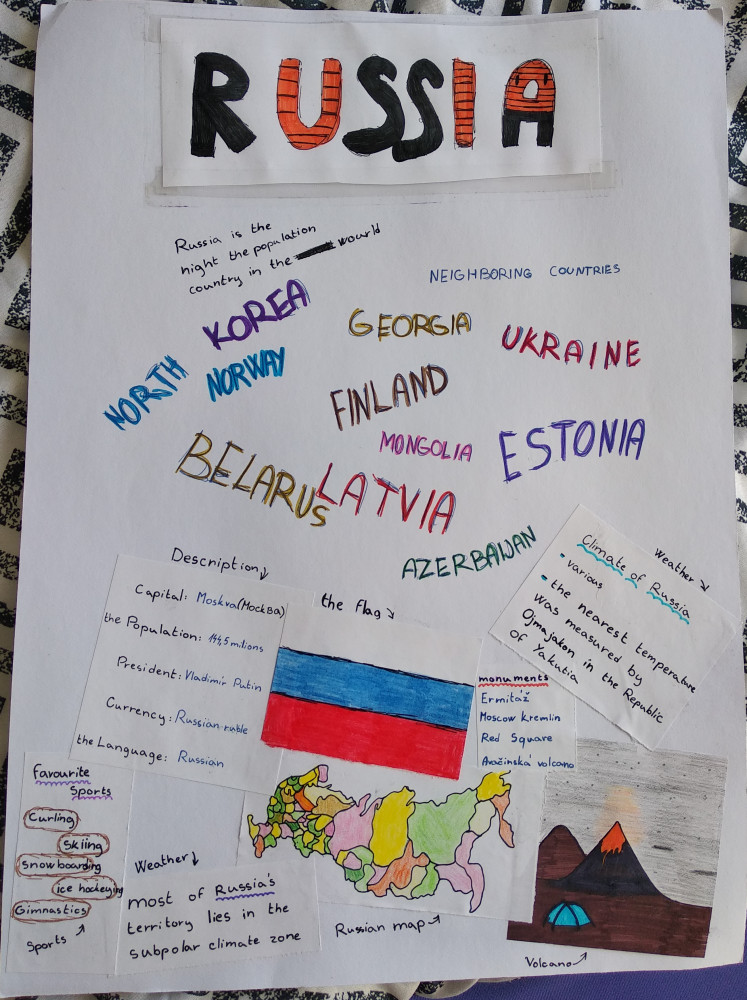 RUSSIA
Russia is the
night the population
country in the wourld
NEIGHBORING COUNTRIES
KOREA
GEORGIA
UKRAINE
NORTH
NORWAY
FINLAND
MONGOLIA
ESTONIA
BELARUS
LATVIA
AZERBAIJAN
Description
Capital: Moskva(Москва)
the Population: 144,5 milions
President: Vladimir Putin
Currency: Russian ruble
the Language: Russian
the flag
Weather
Climate of Russia
- various
- the nearest temperature
was measured by
Ojmajakon in the Republic
of Yakutia
monuments
Ermitáž
Moscow Kremlin
Red Square
Avačinská volcano
favourite
Sports
Curling
Skiing
Snowboarding
ice hockeying
Gimnastics
Sports
Weather
most of Russia's
territory lies in the
subpolar climate zone
Russian map
Volcano